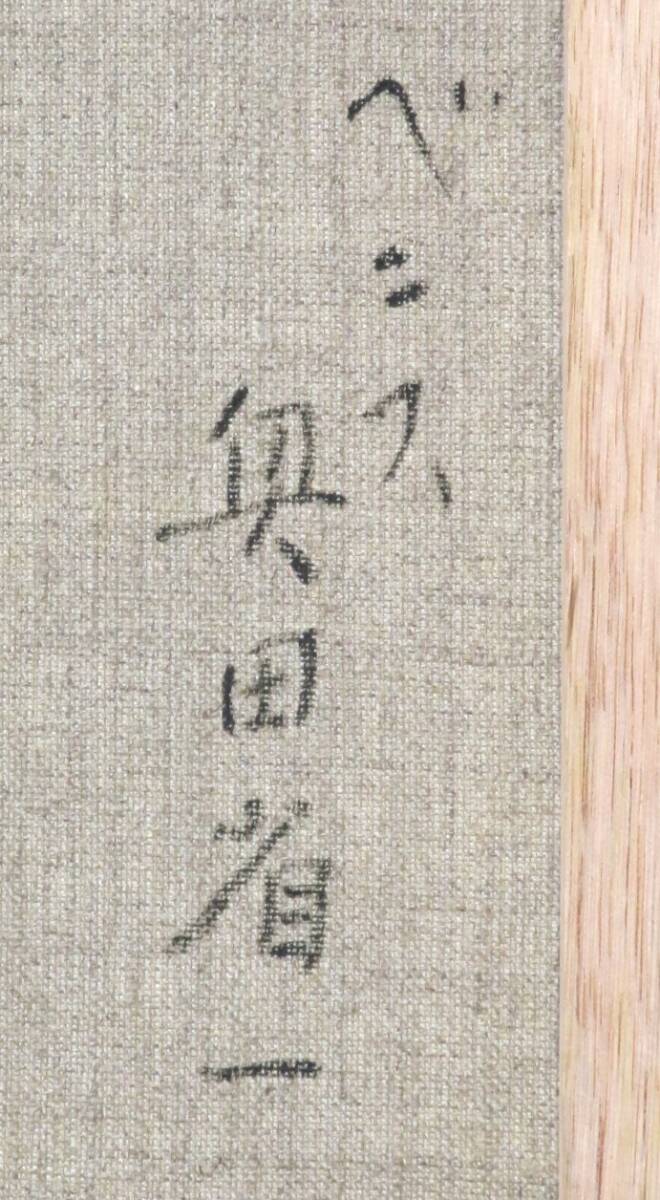 ベニス
奥田省一